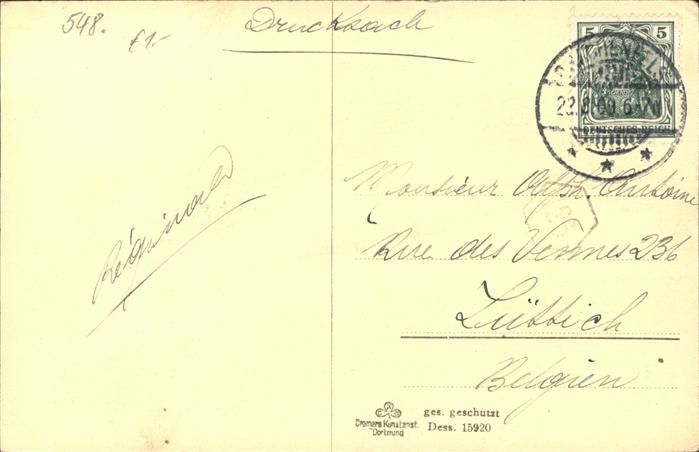 548.
£1.-
Drucksach
5 5
22.8.09. 6-7N
DEUTSCHES REICH
Monsieur Adph. Antoine
Rue des Vennes 236
Lüttich
Belgien
Réginald
Cramers Kunstanst.
Dortmund
ges. geschützt
Dess. 15920